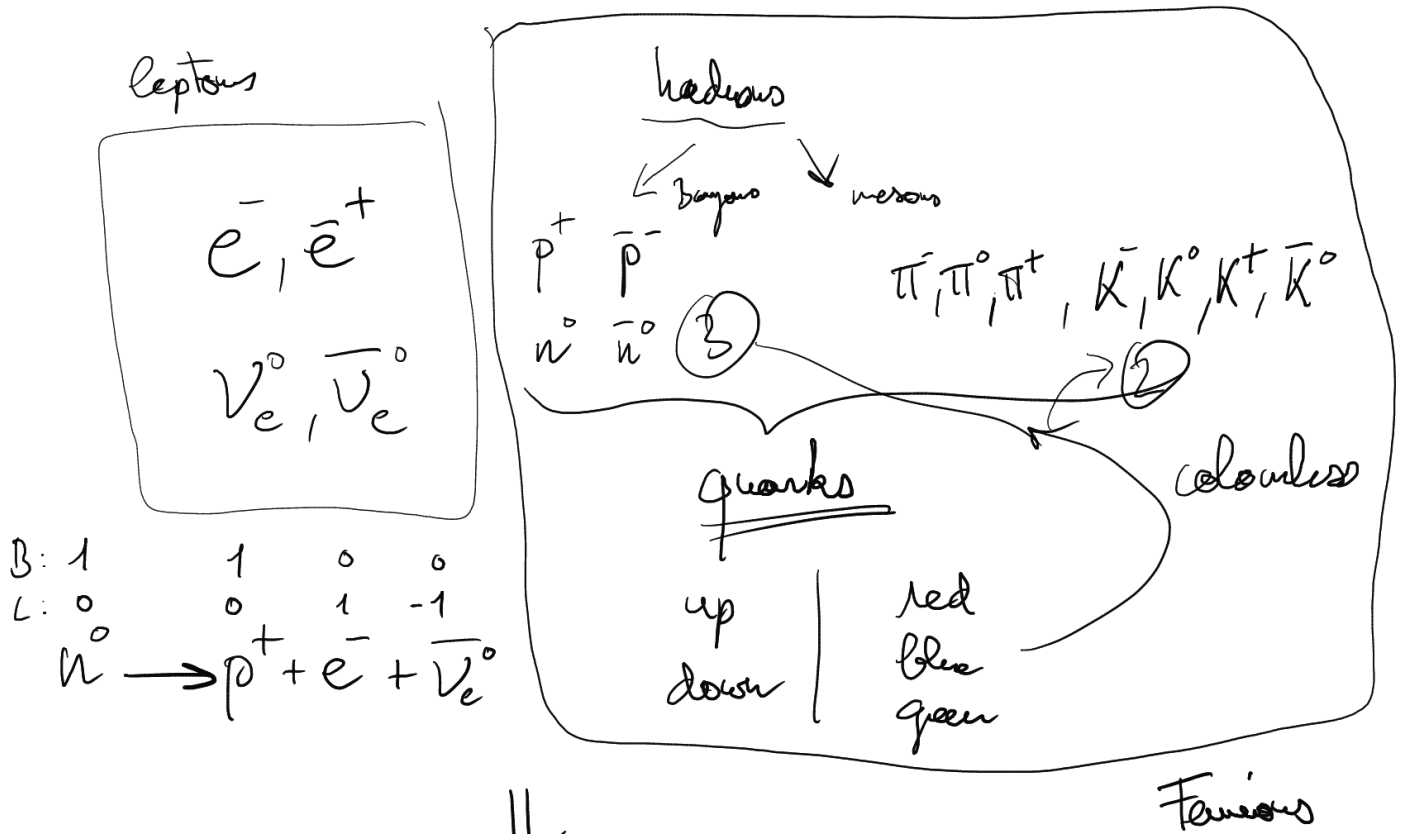 leptons
e⁻, ē⁺
νₑ⁰, ν̄ₑ⁰
B: 1 1 0 0
L: 0 0 1 -1
n⁰ → p⁺ + e⁻ + ν̄ₑ⁰
hadrons
Baryons mesons
p⁺ p̄⁻
n⁰ n̄⁰ 3
π⁻, π⁰, π⁺, K⁻, K⁰, K⁺, K̄⁰
2
quarks
colourless
up
down
red
blue
green
Fermions